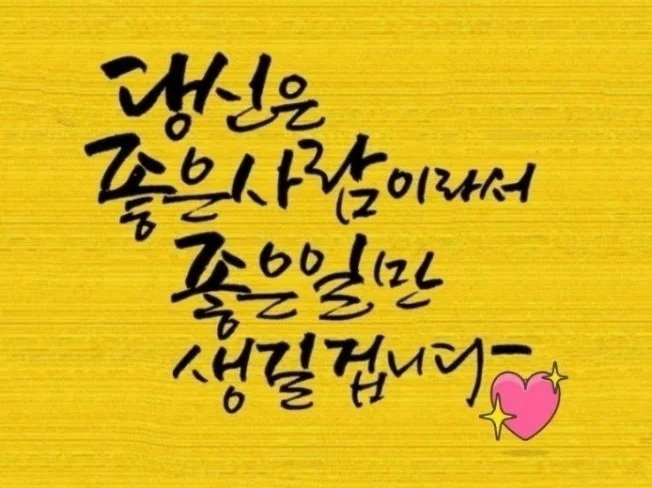 당신은
좋은사람이라서
좋은일만
생길겁니다~